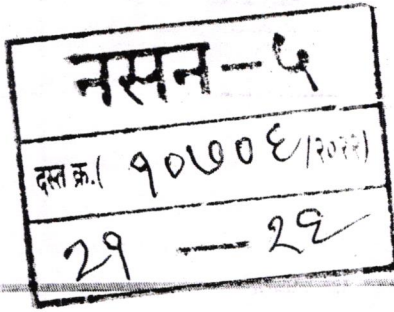 नसन-५
दस्त क्र.( १०७०६/२०२२)
२१ — २९